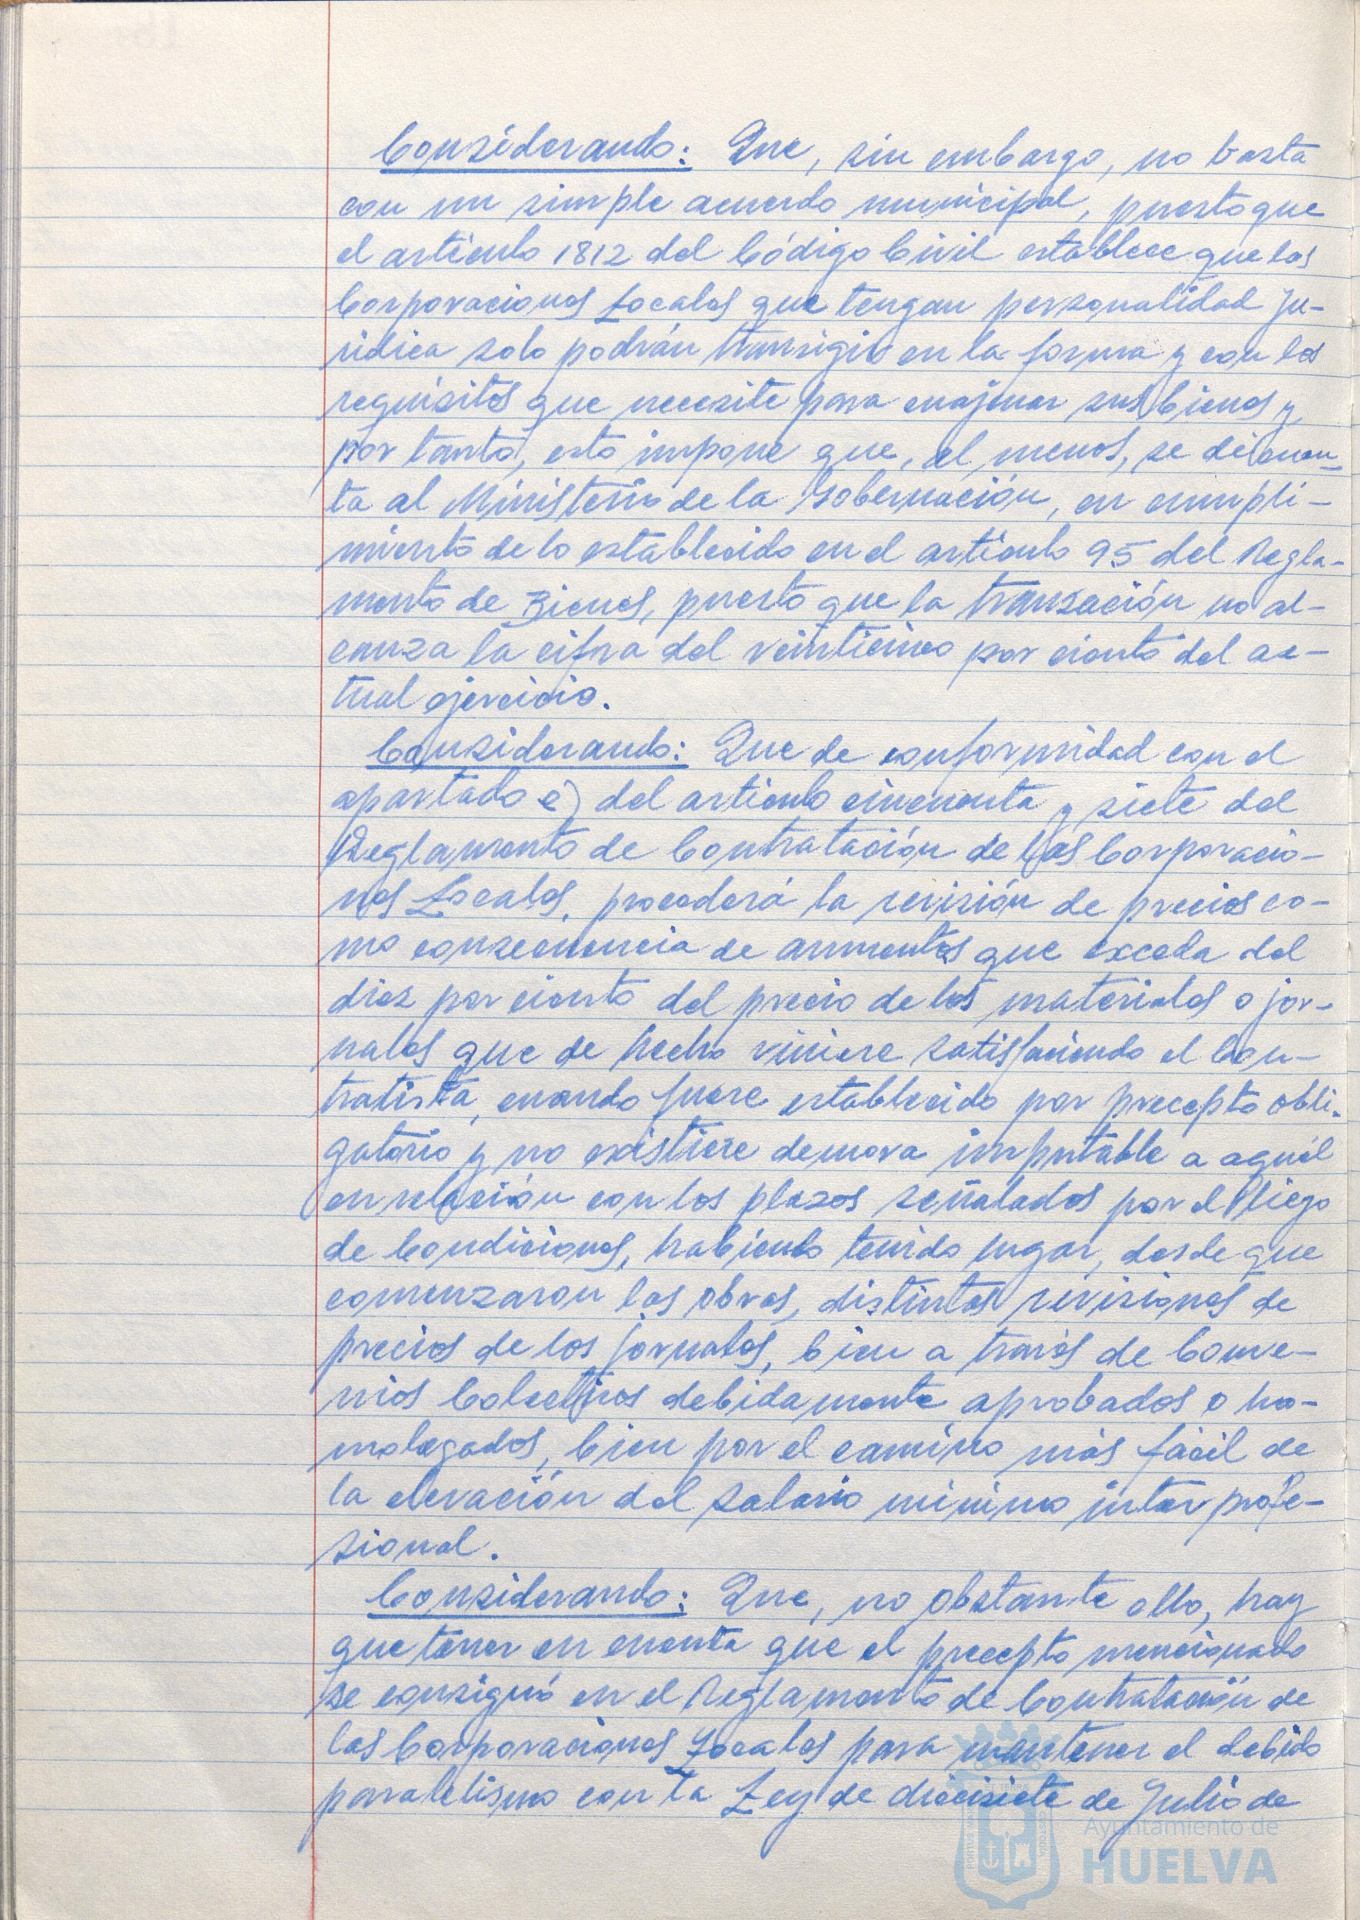 Considerando: Que, sin embargo, no basta
con un simple acuerdo municipal, puesto que
el artículo 1812 del Código Civil establece que las
Corporaciones Locales que tengan personalidad ju-
ridica solo podrán transigir en la forma y con los
requisitos que necesite para enajenar sus bienes y,
por tanto, esto impone que, al menos, se dé cuen-
ta al Ministerio de la Gobernación, en cumpli-
miento de lo establecido en el artículo 95 del Regla-
mento de Bienes, puesto que la transación no al-
canza la cifra del veinticinco por ciento del ac-
tual ejercicio.
Considerando: Que de conformidad con el
apartado e) del artículo cincuenta y siete del
Reglamento de Contratación de las Corporacio-
nes Locales, procederá la revisión de precios co-
mo consecuencia de aumentos que exceda del
diez por ciento del precio de los materiales o jor-
nales que de hecho viniere satisfaciendo el Con-
tratista, cuando fuere establecido por precepto obli-
gatorio y no existiere demora imputable a aquél
en relación con los plazos señalados por el Pliego
de Condiciones, habiendo tenido lugar, desde que
comenzaron las obras, distintas revisiones de
precios de los jornales, bien a través de Conve-
nios Colectivos debidamente aprobados o ho-
mologados, bien por el camino más fácil de
la elevación del salario mínimo interprofe-
sional.
Considerando: Que, no obstante ello, hay
que tener en cuenta que el precepto mencionado
se consignó en el Reglamento de Contratación de
las Corporaciones Locales para mantener el debido
paralelismo con la Ley de diecisiete de Julio de
Ayuntamiento de
HUELVA